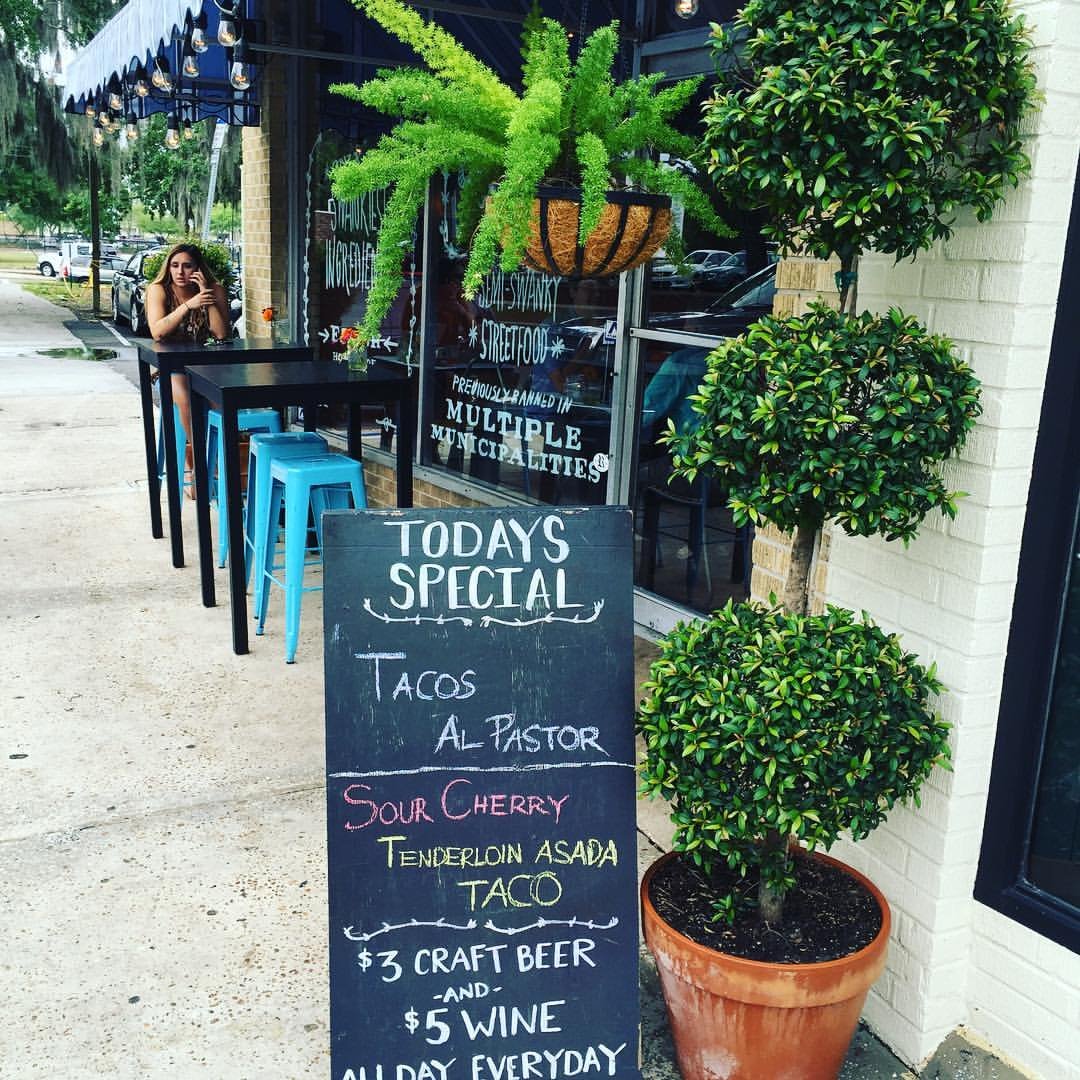 INGREDIEN
SEMI-SWANKY
*STREETFOOD*
PREVIOUSLY BANNED IN
MULTIPLE
MUNICIPALITIES
TODAYS
SPECIAL
TACOS
AL PASTOR
SOUR CHERRY
TENDERLOIN ASADA
TACO
$3 CRAFT BEER
-AND-
$5 WINE
ALL DAY EVERYDAY